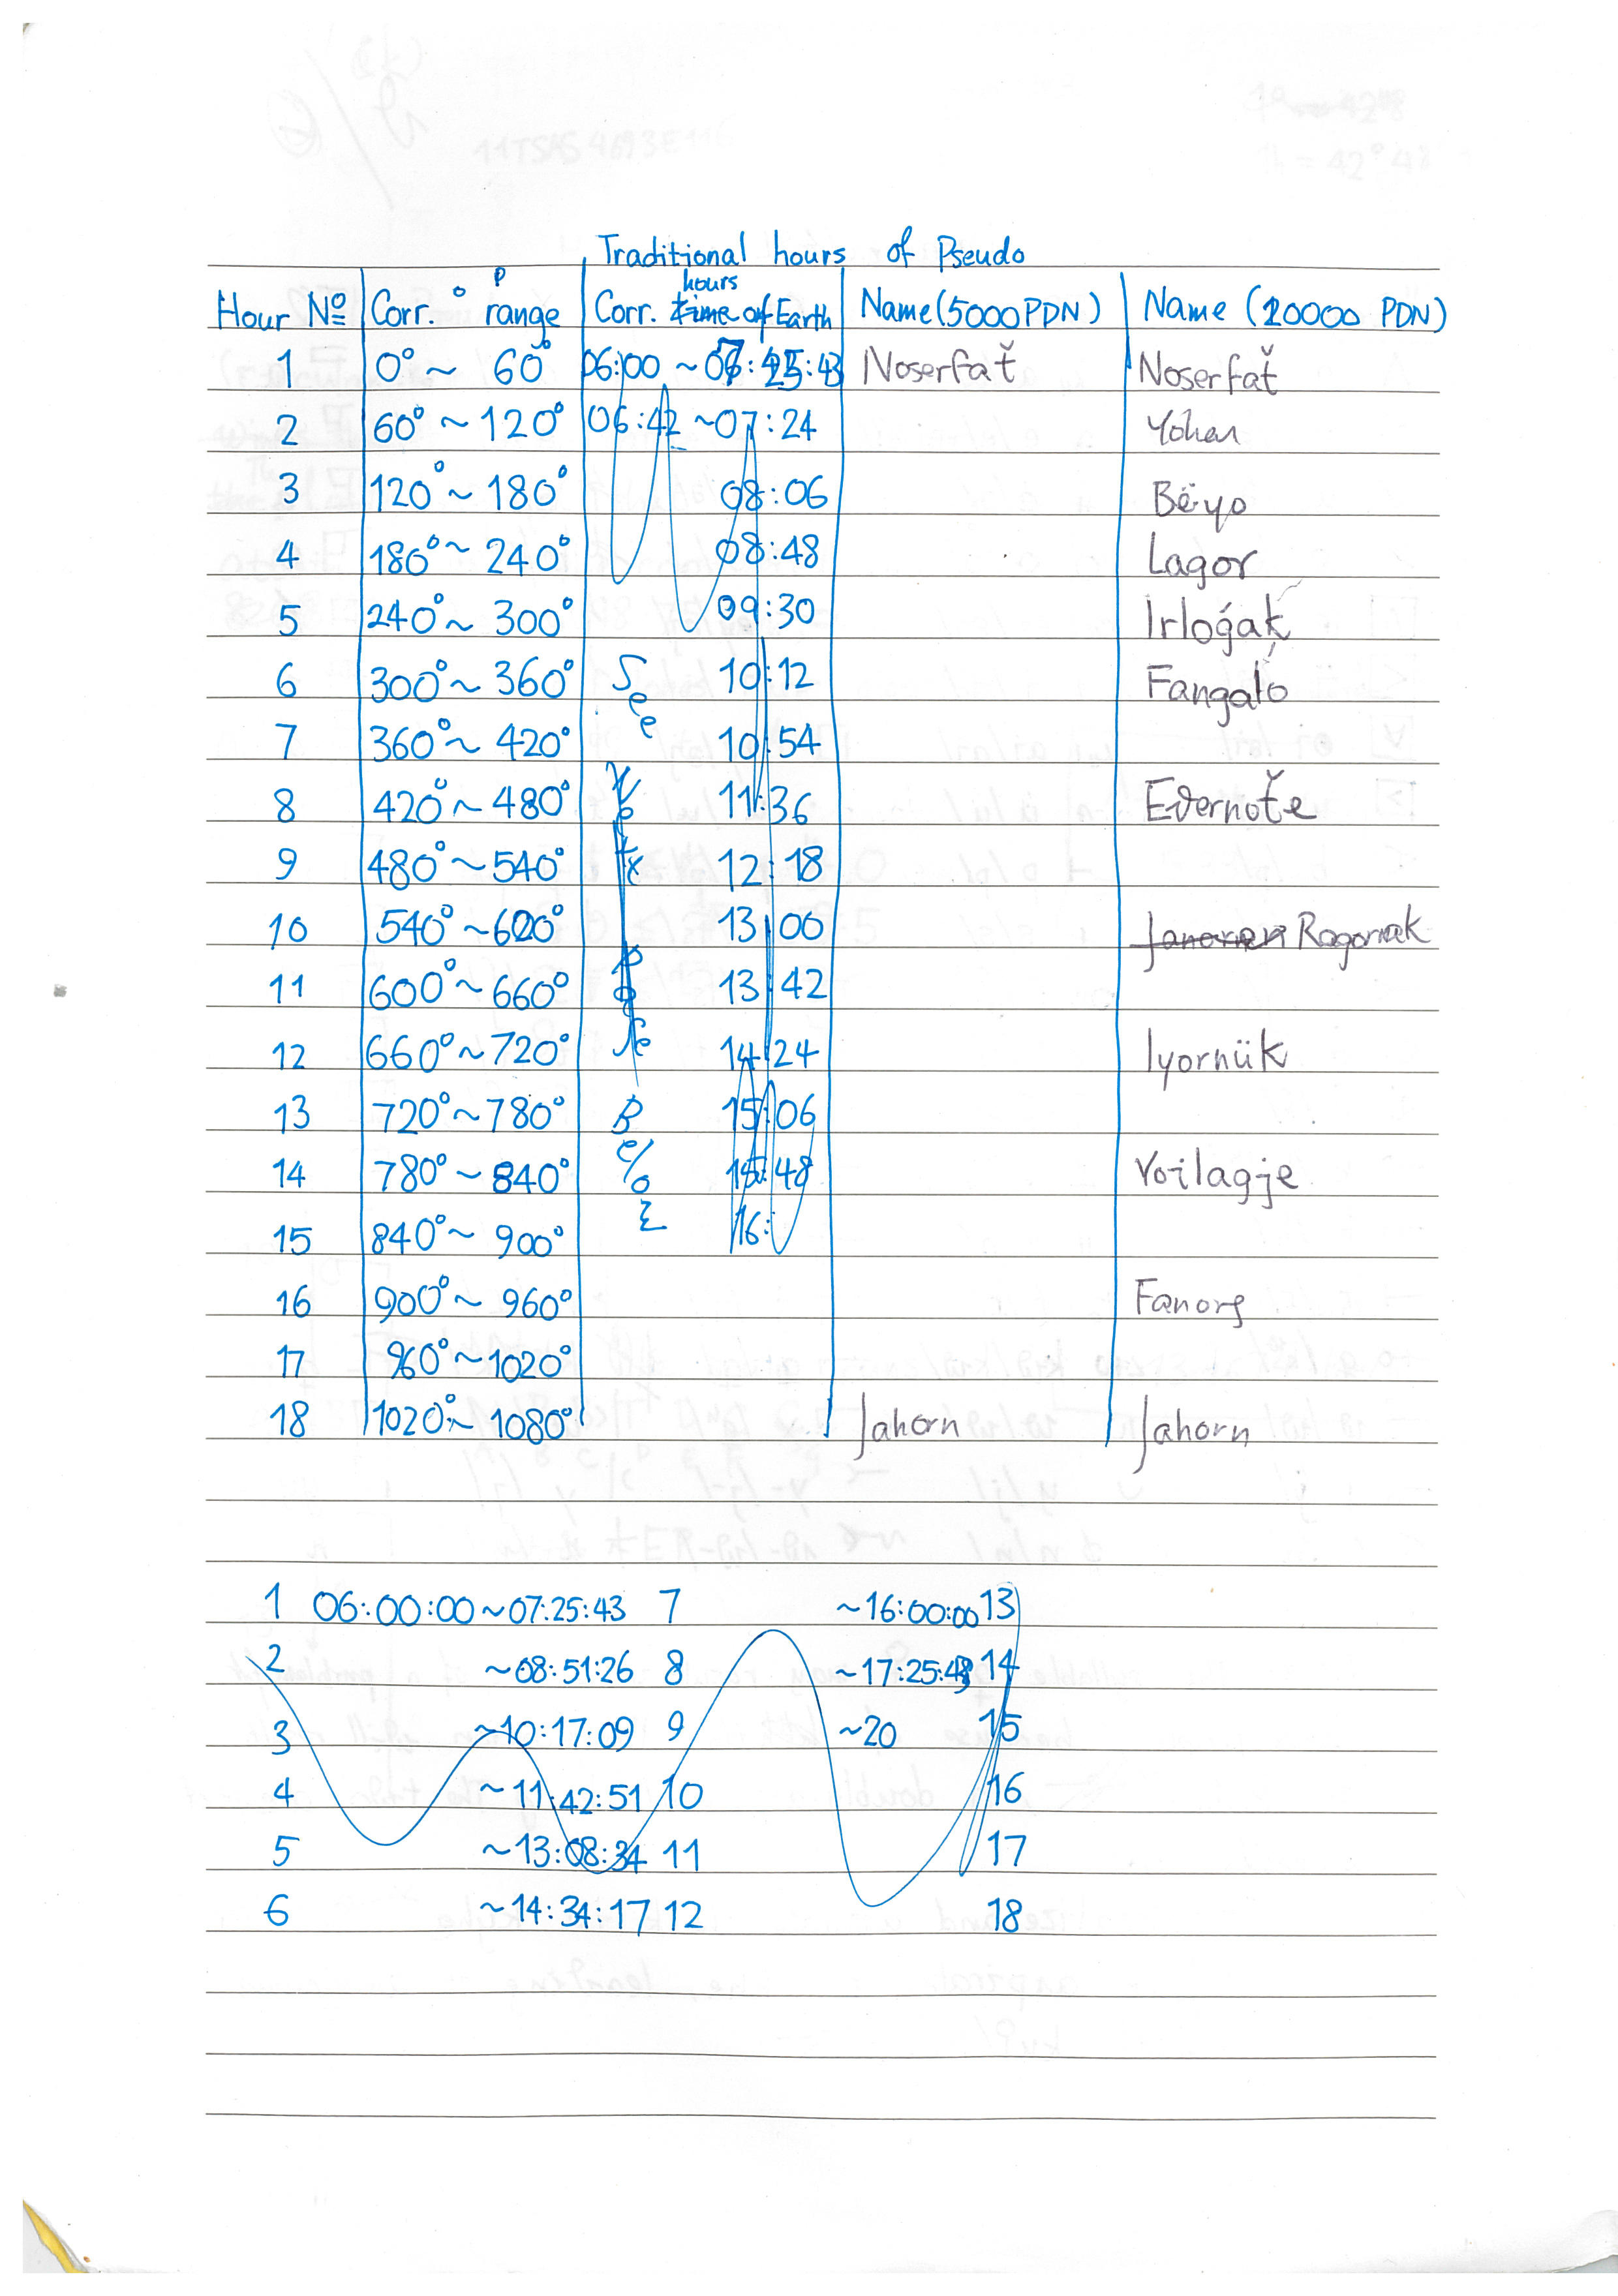 Traditional hours of Pseudo
Hour № Corr. °P range Corr. time hours of Earth Name (5000 PDN) Name (20000 PDN)
1 0° ~ 60° 06:00 ~ 07:25:43 Noserfať Noserfať
2 60° ~ 120° 06:42 ~07:24 Yohen
3 120° ~ 180° 08:06 Bëyo
4 180° ~ 240° 08:48 Lagor
5 240° ~ 300° 09:30 Irloǵaķ
6 300° ~ 360° See 10:12 Fangalo
7 360° ~ 420° 10:54
8 420° ~ 480° 11:36 Evernoťe
9 480° ~ 540° 12:18
10 540° ~ 600° 13:00 Janoren Rogornak
11 600° ~ 660° 13:42
12 660° ~ 720° 14:24 Iyornük
13 720° ~ 780° 15:06
14 780° ~ 840° 15:48 Voilagje
15 840° ~ 900° 16:
16 900° ~ 960° Fanorg
17 960° ~ 1020°
18 1020° ~ 1080° Jahorn Jahorn
1 06:00:00 ~07:25:43 7 ~16:00:00 13
2 ~08:51:26 8 ~17:25:43 14
3 ~10:17:09 9 ~20 15
4 ~11:42:51 10 16
5 ~13:08:34 11 17
6 ~14:34:17 12 18